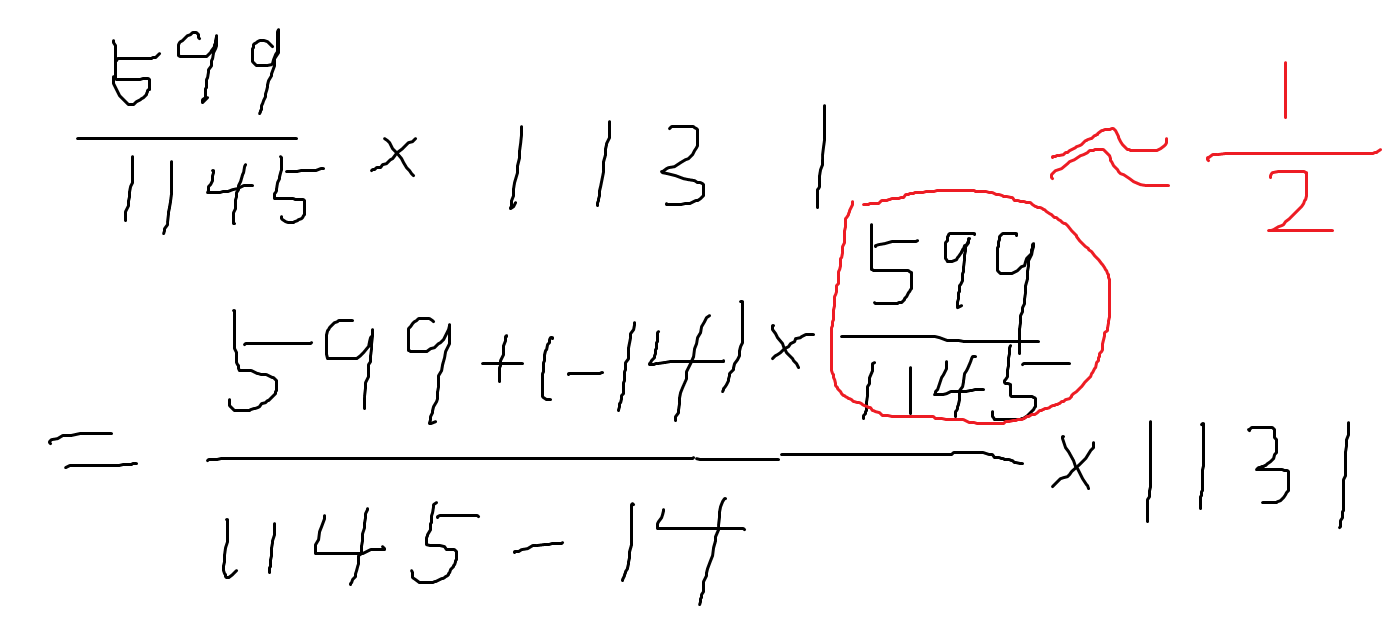 599/1145 × 1131 ≈ 1/2
= (599+(-14)×599/1145)/(1145-14) × 1131